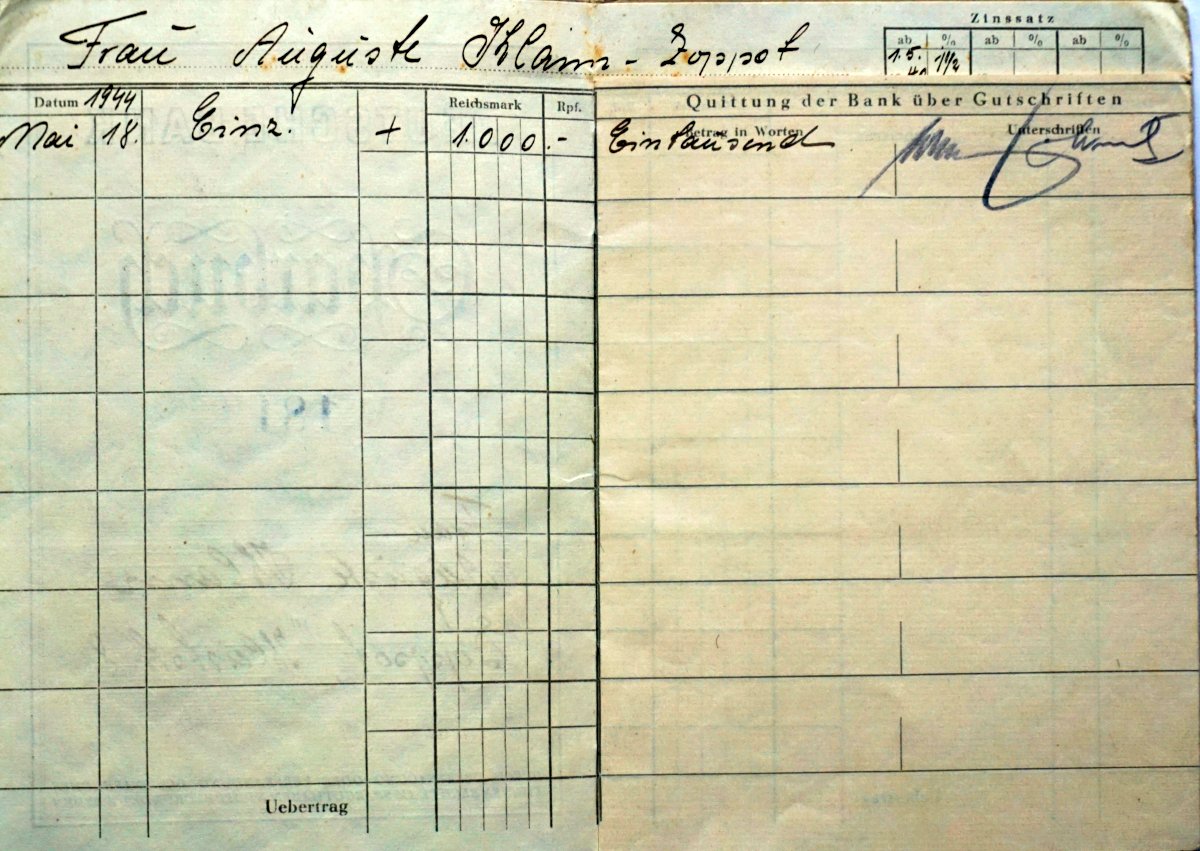 Zinssatz
Frau Auguste Klann - Zoppot
ab % ab % ab %
1.5. 1 1/2
Datum 1944 Reichsmark Rpf. Quittung der Bank über Gutschriften
Betrag in Worten Unterschriften
Mai 18. Einz. + 1.000.- Eintausend
Uebertrag